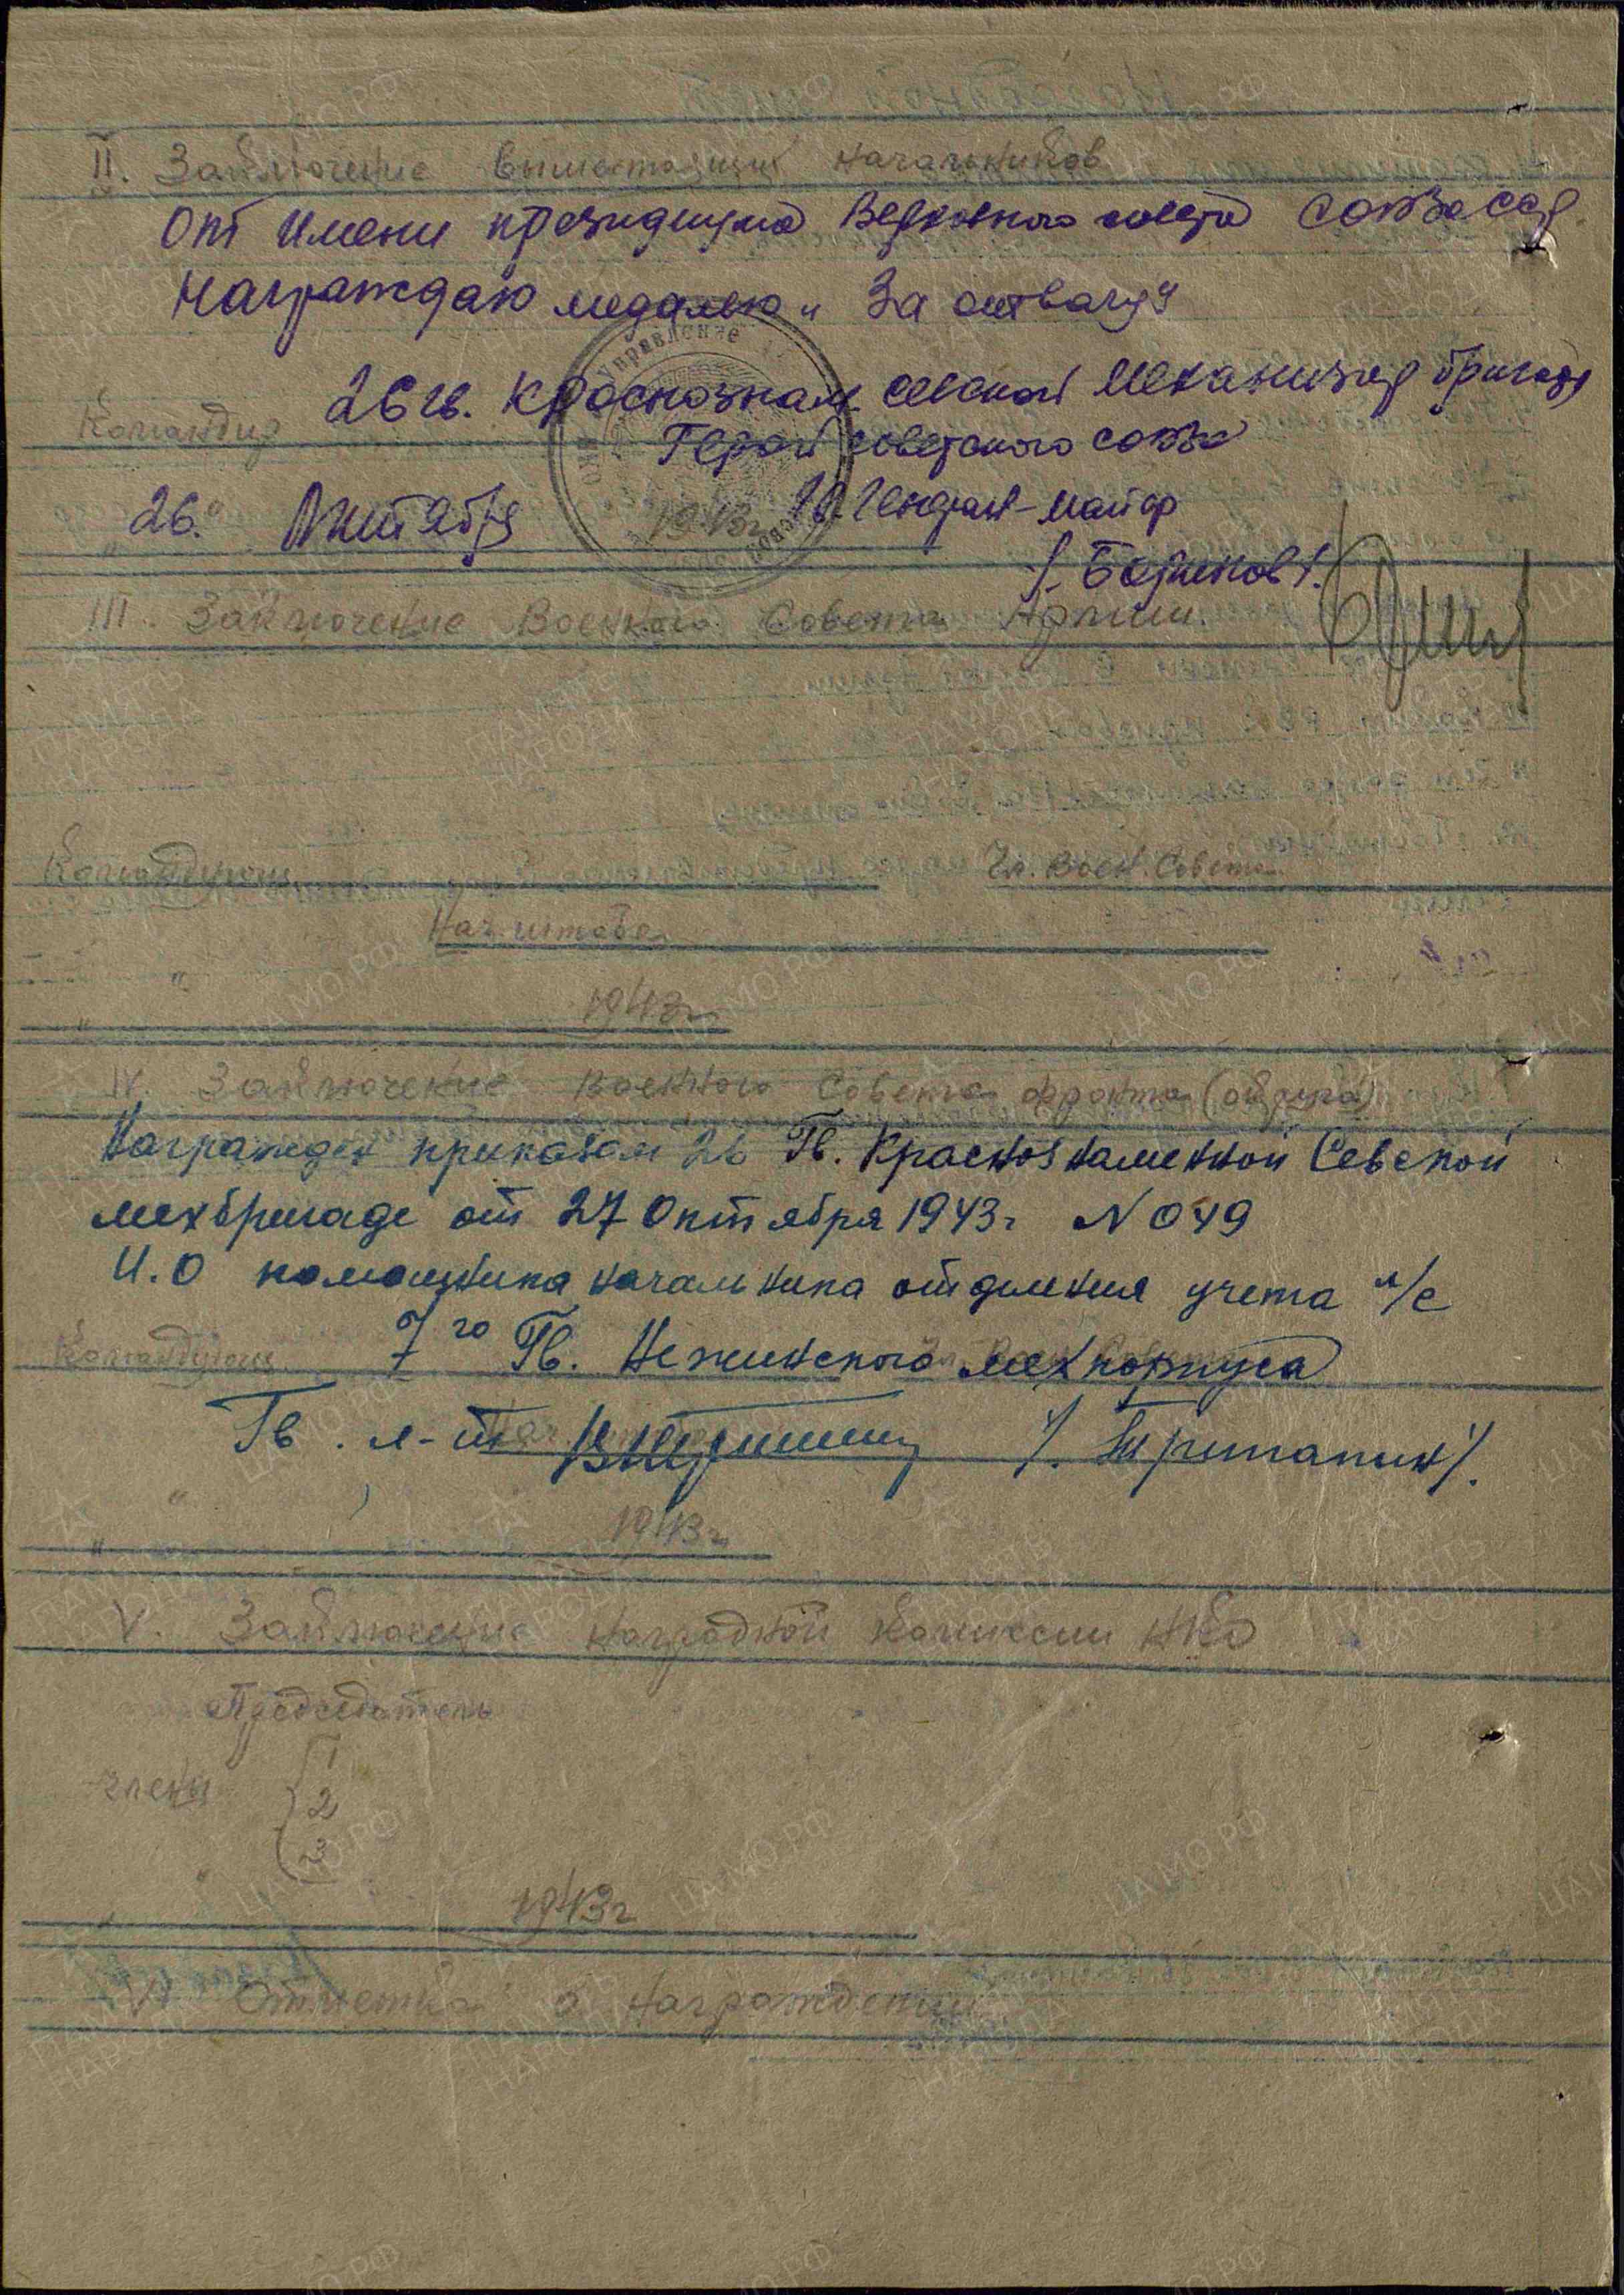 II. Заключение вышестоящих начальников
От имени президиума Верховного совета союза сср
награждаю медалью „За отвагу"
Командир 26 гв. Краснознам севской механизир бригады
Герой советского союза
26." Октября 1943г. гв. Генерал-майор
/. Бориков /.
III. Заключение Военного Совета Армии.
Командующ. Чл. Воен. Совета
Нач. штаба
" " 1943г.
IV. Заключение Военного Совета фронта (округа)
Награжден приказом 26 Гв. Краснознаменной Севской
мехбригаде от 27 Октября 1943г N 049
И.О помощника начальника отделения учета л/с
Командующ. 7го Гв. Нежинского мехкорпуса
Гв. л-т
" " 1943г.
V. Заключение Наградной комиссии НКО
Председатель
члены 1
2
3
" " 1943г
VI Отметка о награждении